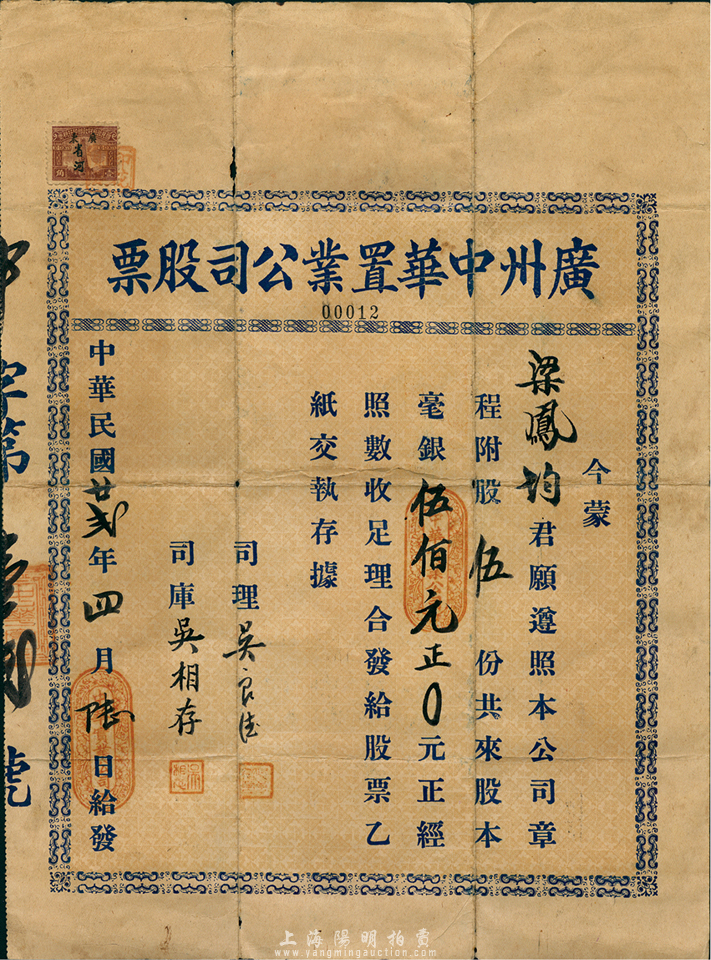 廣東
省河
壹角
廣州中華置業公司股票
00012
今蒙
梁鳳均君願遵照本公司章
程附股伍份共來股本
毫銀伍佰元正0元正經
照數收足理合發給股票乙
紙交執存據
司理吳良德
司庫吳相存
中華民國廿弍年四月陸日給發
字第壹號
上海陽明拍賣
www.yangmingauction.com